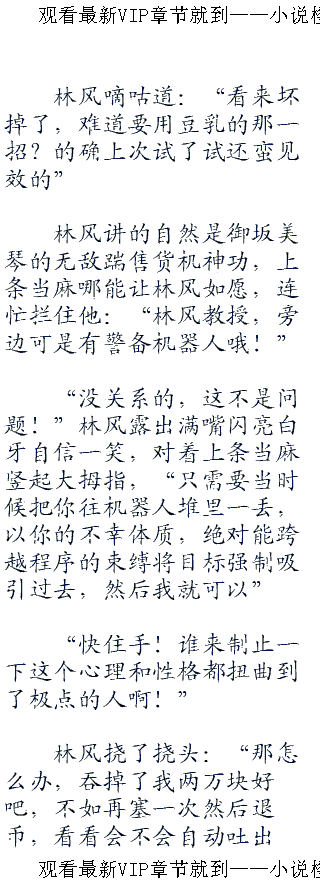 观看最新VIP章节就到——小说
林风嘀咕道：“看来坏
掉了，难道要用豆乳的那一
招？的确上次试了试还蛮见
效的”
林风讲的自然是御坂美
琴的无敌踹售货机神功，上
条当麻哪能让林风如愿，连
忙拦住他：“林风教授，旁
边可是有警备机器人哦！”
“没关系的，这不是问
题！”林风露出满嘴闪亮白
牙自信一笑，对着上条当麻
竖起大拇指，“只需要当时
候把你往机器人堆里一丢，
以你的不幸体质，绝对能跨
越程序的束缚将目标强制吸
引过去，然后我就可以”
“快住手！谁来制止一
下这个心理和性格都扭曲到
了极点的人啊！”
林风挠了挠头：“那怎
么办，吞掉了我两万块好
吧，不如再塞一次然后退
币，看看会不会自动吐出
观看最新VIP章节就到——小说